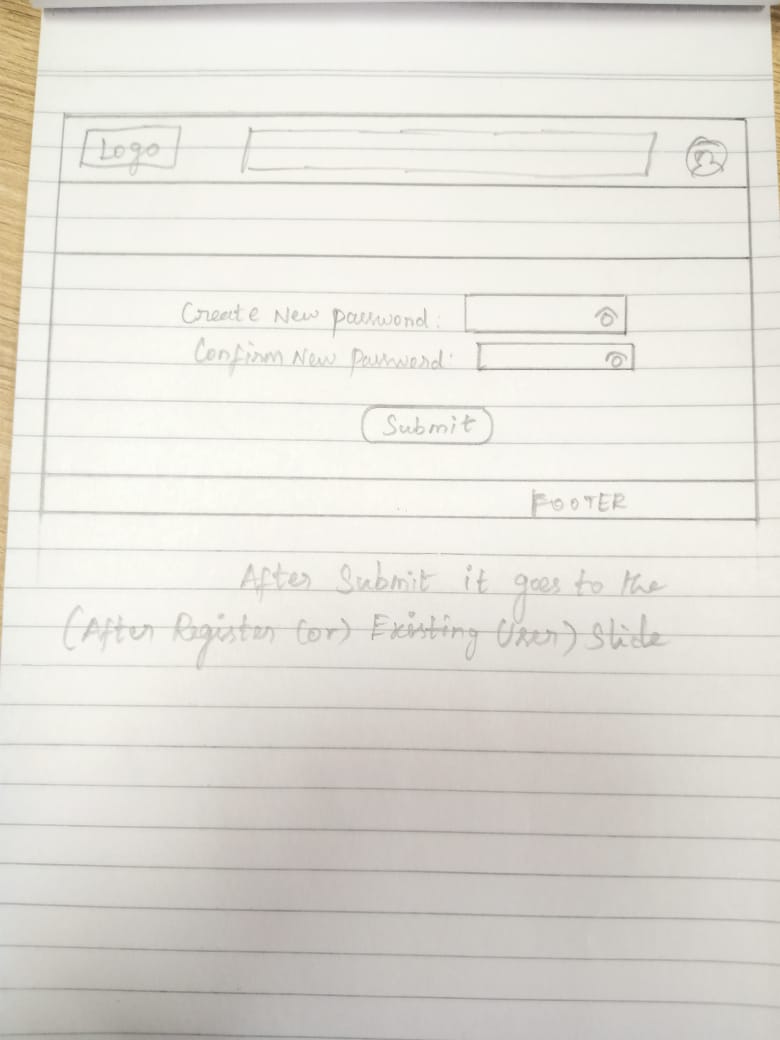 Logo
Create New password:
Confirm New Password:
Submit
FOOTER
After Submit it goes to the
(After Register (or) Existing User) Slide